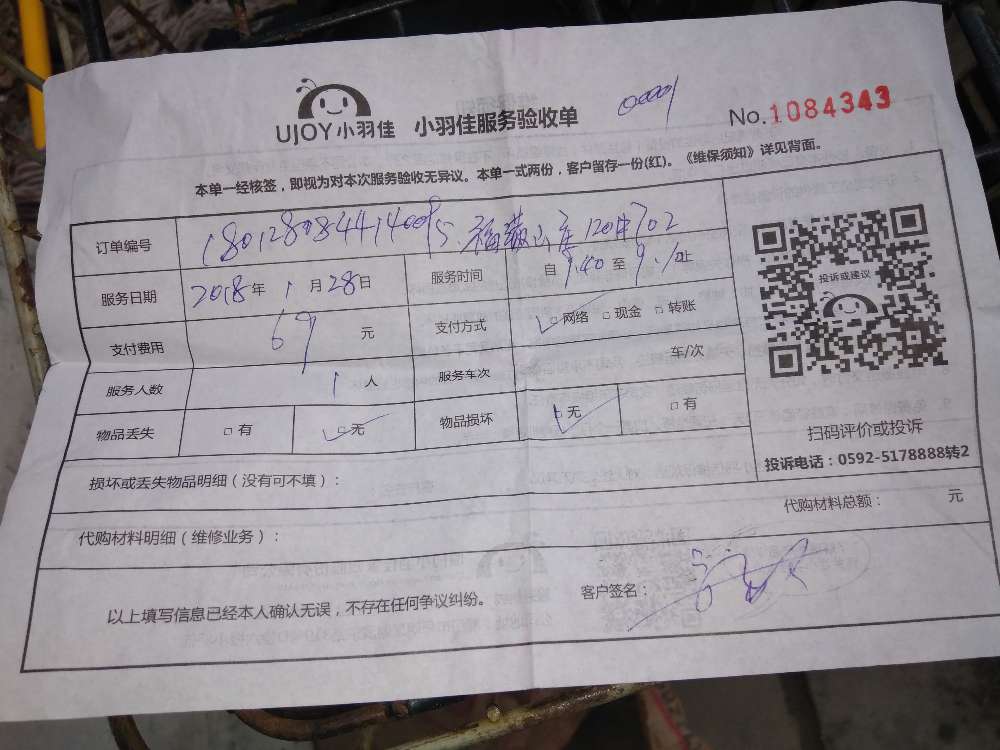 UJOY小羽佳 小羽佳服务验收单 00001 No.1084343
本单一经核签，即视为对本次服务验收无异议。本单一式两份，客户留存一份(红)。《维保须知》详见背面。
订单编号
服务日期 2018年1月28日 服务时间 自9.40至 止
支付费用 69 元 支付方式 □网络 □现金 □转账
服务人数 1人 服务车次 车/次
物品丢失 □有 □无 物品损坏 □无 □有
损坏或丢失物品明细（没有可不填）：
代购材料明细（维修业务）： 代购材料总额： 元
以上填写信息已经本人确认无误，不存在任何争议纠纷。 客户签名：
投诉或建议
扫码评价或投诉
投诉电话：0592-5178888转2